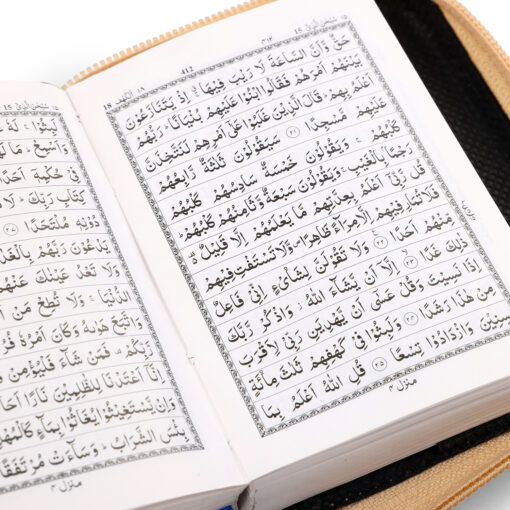 سُبْحٰنَ الَّذِيْۤ ١٥
412
الكهف ١٨
حَقٌّ وَّاَنَّ السَّاعَةَ لَا رَيْبَ فِيْهَا ۚ اِذْ يَتَنَازَعُوْنَ
بَيْنَهُمْ اَمْرَهُمْ فَقَالُوا ابْنُوْا عَلَيْهِمْ بُنْيَانًا ؕ رَبُّهُمْ
اَعْلَمُ بِهِمْ ؕ قَالَ الَّذِيْنَ غَلَبُوْا عَلٰۤى اَمْرِهِمْ لَنَتَّخِذَنَّ
عَلَيْهِمْ مَّسْجِدًا ﴿٢١﴾ سَيَقُوْلُوْنَ ثَلٰثَةٌ رَّابِعُهُمْ
كَلْبُهُمْ ۚ وَيَقُوْلُوْنَ خَمْسَةٌ سَادِسُهُمْ كَلْبُهُمْ
رَجْمًۢا بِالْغَيْبِ ۚ وَيَقُوْلُوْنَ سَبْعَةٌ وَّثَامِنُهُمْ كَلْبُهُمْ ؕ
قُلْ رَّبِّيْۤ اَعْلَمُ بِعِدَّتِهِمْ مَّا يَعْلَمُهُمْ اِلَّا قَلِيْلٌ ۬
فَلَا تُمَارِ فِيْهِمْ اِلَّا مِرَآءً ظَاهِرًا ۪ وَّلَا تَسْتَفْتِ فِيْهِمْ
مِّنْهُمْ اَحَدًا ﴿٢٢﴾ وَلَا تَقُوْلَنَّ لِشَايْءٍ اِنِّيْ فَاعِلٌ
ذٰلِكَ غَدًا ﴿٢٣﴾ اِلَّاۤ اَنْ يَّشَآءَ اللّٰهُ ۫ وَاذْكُرْ رَّبَّكَ
اِذَا نَسِيْتَ وَقُلْ عَسٰۤى اَنْ يَّهْدِيَنِ رَبِّيْ لِاَقْرَبَ
مِنْ هٰذَا رَشَدًا ﴿٢٤﴾ وَلَبِثُوْا فِيْ كَهْفِهِمْ ثَلٰثَ مِائَةٍ
سِنِيْنَ وَازْدَادُوْا تِسْعًا ﴿٢٥﴾ قُلِ اللّٰهُ اَعْلَمُ بِمَا
منزل ٤
سُبْحٰنَ الَّذِيْۤ ١٥
لَبِثُوْا ۚ لَهٗ
وَاَسْمِعْ ؕ مَا
فِيْ حُكْمِهٖۤ اَحَدًا
كِتَابِ رَبِّكَ ؕ لَا
دُوْنِهٖ مُلْتَحَدًا
يَدْعُوْنَ رَبَّهُمْ بِالْغَ
وَلَا تَعْدُ عَيْنٰكَ عَنْهُمْ
الدُّنْيَا ۚ وَلَا تُطِعْ مَنْ
وَاتَّبَعَ هَوٰىهُ وَكَانَ اَمْرُهٗ فُ
رَّبِّكُمْ ۫ فَمَنْ شَآءَ فَلْيُؤْمِنْ
اِنَّاۤ اَعْتَدْنَا لِلظّٰلِمِيْنَ نَارًا ۙ اَحَا
وَاِنْ يَّسْتَغِيْثُوْا يُغَاثُوْا بِمَآءٍ كَالْمُهْلِ
بِئْسَ الشَّرَابُ ؕ وَسَآءَتْ مُرْتَفَقًا
منزل ٤